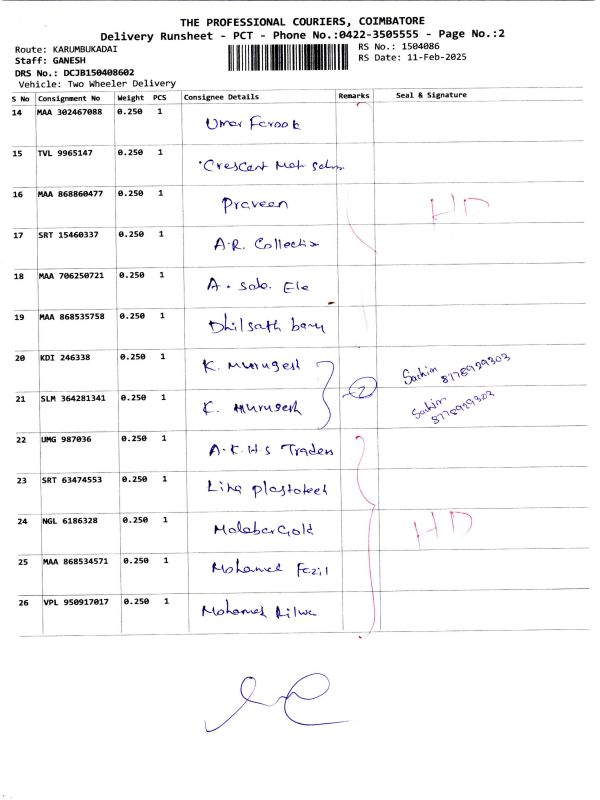 THE PROFESSIONAL COURIERS, COIMBATORE
Delivery Runsheet - PCT - Phone No.:0422-3505555 - Page No.:2
Route: KARUMBUKADAI
RS No.: 1504086
Staff: GANESH
RS Date: 11-Feb-2025
DRS No.: DCJB150408602
Vehicle: Two Wheeler Delivery
S No Consignment No Weight PCS Consignee Details Remarks Seal & Signature
14 MAA 302467088 0.250 1 Umar Farook
15 TVL 9965147 0.250 1 Crescent Mat
16 MAA 868860477 0.250 1 Praveen
HD
17 SRT 15460337 0.250 1 A.R. Collectio
18 MAA 706250721 0.250 1 A. Ele
19 MAA 868535758 0.250 1 Dhilsath banu
20 KDI 246338 0.250 1 K. Murugesh
21 SLM 364281341 0.250 1 K. Murugesh 2
22 UMG 987036 0.250 1 A.K.H.S Traders
23 SRT 63474553 0.250 1 Plastotech
24 NGL 6186328 0.250 1 Malabar Gold HD
25 MAA 868534571 0.250 1 Mohamed Fazil
26 VPL 950917017 0.250 1 Mohamed Rilwa